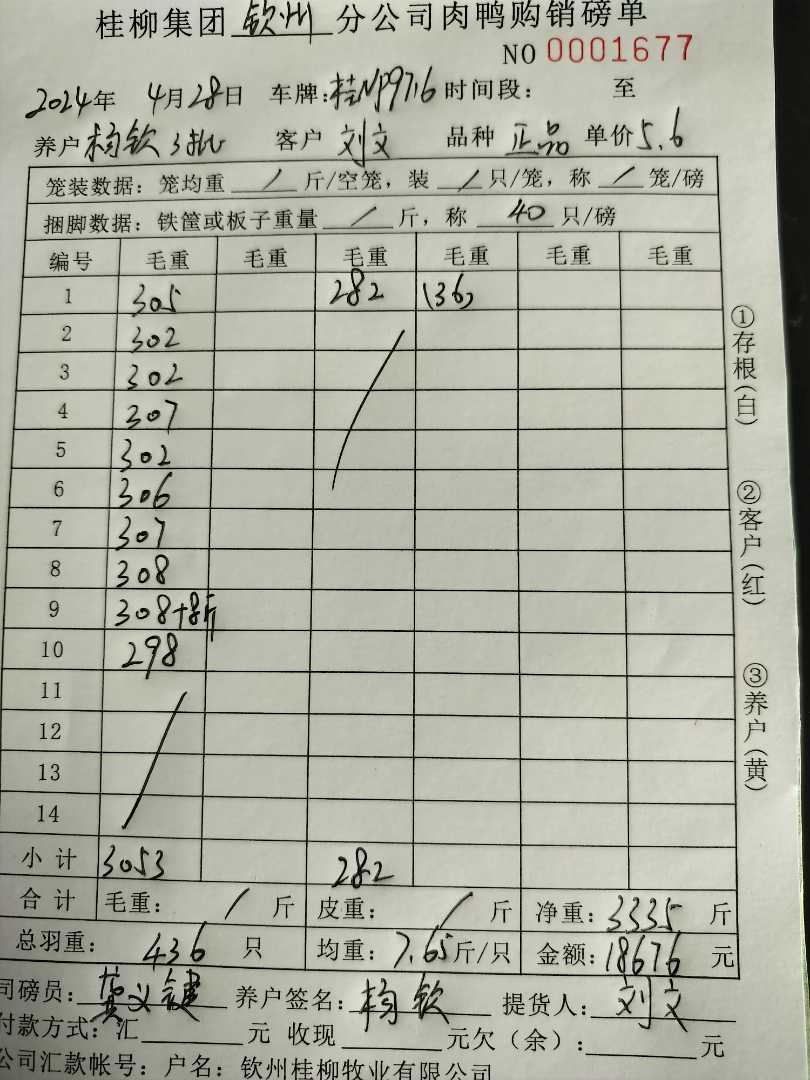 桂柳集团 钦州 分公司肉鸭购销磅单
NO 0001677
2024年 4月28日 车牌:桂NP9716 时间段: 至
养户 杨钦 3批 客户 刘文 品种 正品 单价 5.6
笼装数据: 笼均重 / 斤/空笼, 装 / 只/笼, 称 / 笼/磅
捆脚数据: 铁筐或板子重量 / 斤, 称 40 只/磅
编号 毛重 毛重 毛重 毛重 毛重 毛重
1 305 282 (36)
2 302
3 302
4 307
5 302
6 306
7 307
8 308
9 308+8斤
10 298
11
12
13
14
小计 3053 282
合计 毛重: / 斤 皮重: / 斤 净重: 3335 斤
总羽重: 436 只 均重: 7.65 斤/只 金额: 18676 元
司磅员: 黄义键 养户签名: 杨钦 提货人: 刘文
付款方式: 汇 元 收现 元欠(余): 元
公司汇款帐号: 户名: 钦州桂柳牧业有限公司
①存根(白)
②客户(红)
③养户(黄)